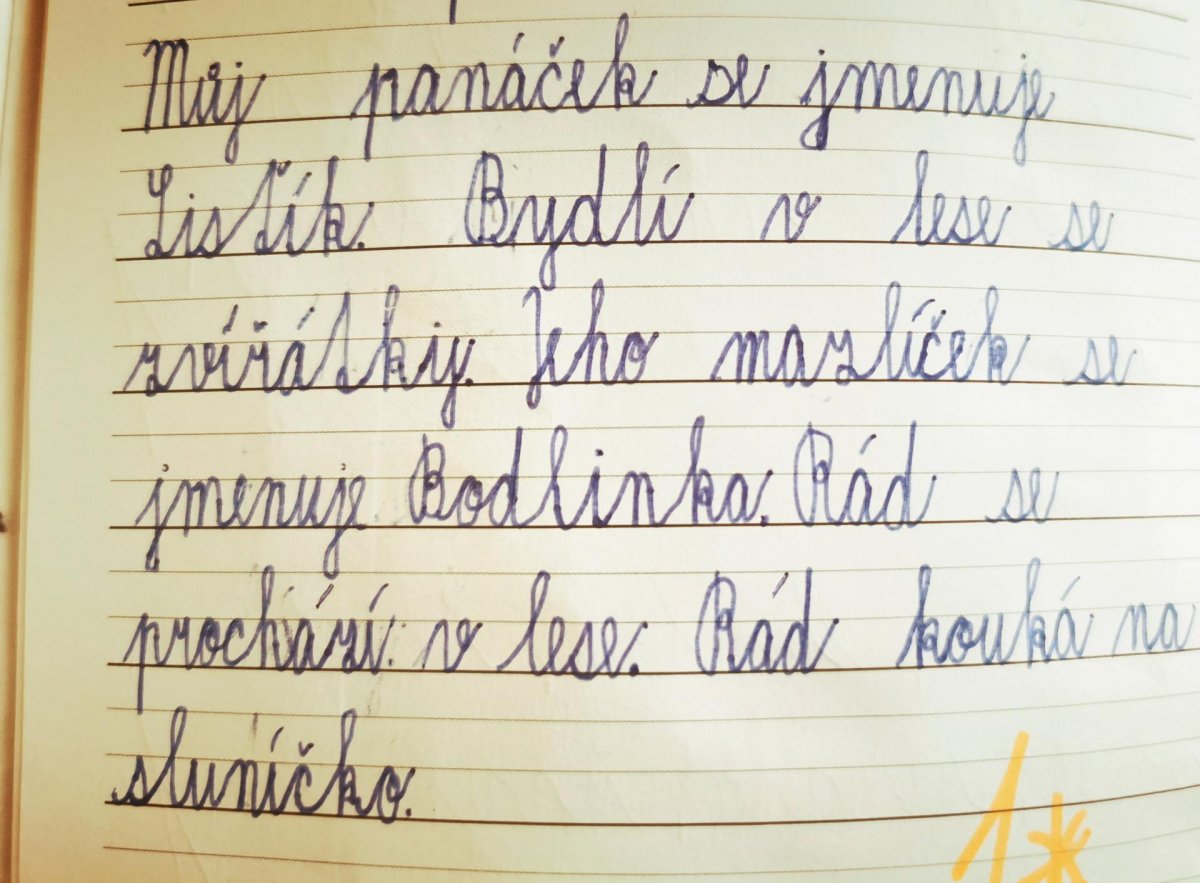 Můj panáček se jmenuje
Lisťík. Bydlí v lese se
zvířátky. Jeho mazlíček se
jmenuje Bodlinka. Rád se
prochází v lese. Rád kouká na
sluníčko.
1*